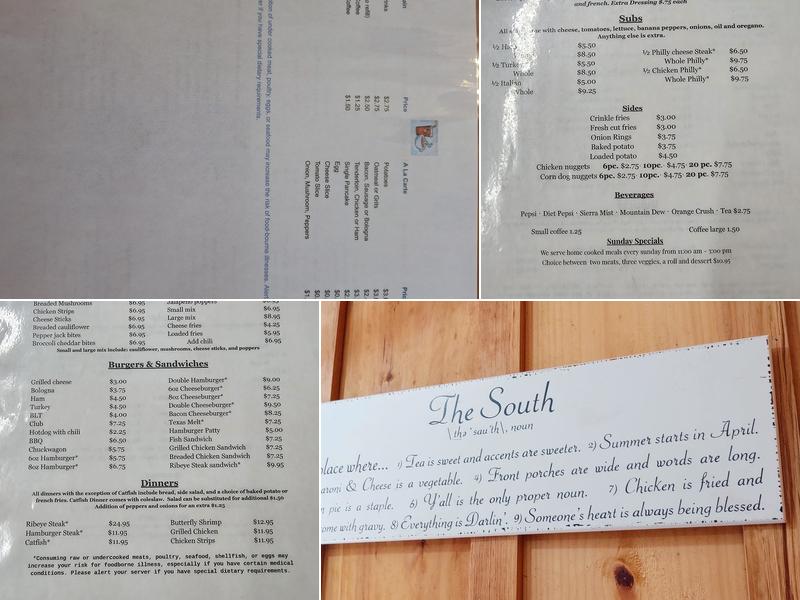 Price
$2.75
$2.75
$2.50
$1.25
$1.50
A La Carte
Potatoes
Oatmeal or Grits
Bacon, Sausage or Bologna
Tenderloin, Chicken or Ham
Single Pancake
Egg
Cheese Slice
Tomato Slice
Onion, Mushroom, Peppers
of under cooked meat, poultry, eggs, or seafood may increase the risk of food-bourne illnesses.
er if you have special dietary requirements.
and french. Extra Dressing $.75 each
Subs
with cheese, tomatoes, lettuce, banana peppers, onions, oil and oregano.
Anything else is extra.
$5.50
$8.50
½ Turkey $5.50
Whole $8.50
½ Italian $5.00
Whole $9.25
½ Philly cheese Steak* $6.50
Whole Philly* $9.75
½ Chicken Philly* $6.50
Whole Philly* $9.75
Sides
Crinkle fries $3.00
Fresh cut fries $3.00
Onion Rings $3.75
Baked potato $3.75
Loaded potato $4.50
Chicken nuggets 6pc. $2.75 · 10pc. · $4.75 · 20 pc. $7.75
Corn dog nuggets 6pc. $2.75 · 10pc. · $4.75 · 20 pc. $7.75
Beverages
Pepsi · Diet Pepsi · Sierra Mist · Mountain Dew · Orange Crush · Tea $2.75
Small coffee 1.25 Coffee large 1.50
Sunday Specials
We serve home cooked meals every sunday from 11:00 am - 3:00 pm
Choice between two meats, three veggies, a roll and dessert $10.95
Breaded Mushrooms $6.95
Chicken Strips $6.95
Cheese Sticks $6.95
Breaded cauliflower $6.95
Pepper jack bites $6.95
Broccoli cheddar bites $6.95
Jalapeno poppers
Small mix $6.95
Large mix $8.95
Cheese fries $4.25
Loaded fries $5.95
Add chili $6.95
Small and large mix include: cauliflower, mushrooms, cheese sticks, and poppers
Burgers & Sandwiches
Grilled cheese $3.00
Bologna $3.75
Ham $4.50
Turkey $4.50
BLT $4.00
Club $7.25
Hotdog with chili $2.25
BBQ $6.50
Chuckwagon $5.75
6oz Hamburger* $5.75
8oz Hamburger* $6.75
Double Hamburger* $9.00
6oz Cheeseburger* $6.25
8oz Cheeseburger* $7.25
Double Cheeseburger* $9.50
Bacon Cheeseburger* $8.25
Texas Melt* $7.25
Hamburger Patty $5.00
Fish Sandwich $7.25
Grilled Chicken Sandwich $7.25
Breaded Chicken Sandwich $7.25
Ribeye Steak sandwich* $9.95
Dinners
All dinners with the exception of Catfish include bread, side salad, and a choice of baked potato or
french fries. Catfish Dinner comes with coleslaw. Salad can be substituted for additional $1.50
Addition of peppers and onions for an extra $1.25
Ribeye Steak* $24.95
Hamburger Steak* $11.95
Catfish* $11.95
Butterfly Shrimp $12.95
Grilled Chicken $11.95
Chicken Strips $11.95
*Consuming raw or undercooked meats, poultry, seafood, shellfish, or eggs may
increase your risk for foodborne illness, especially if you have certain medical
conditions. Please alert your server if you have special dietary requirements.
The South
\thə ˈsau̇th\, noun
place where... 1) Tea is sweet and accents are sweeter. 2) Summer starts in April.
aroni & Cheese is a vegetable. 4) Front porches are wide and words are long.
n pie is a staple. 6) Y'all is the only proper noun. 7) Chicken is fried and
ome with gravy. 8) Everything is Darlin'. 9) Someone's heart is always being blessed.